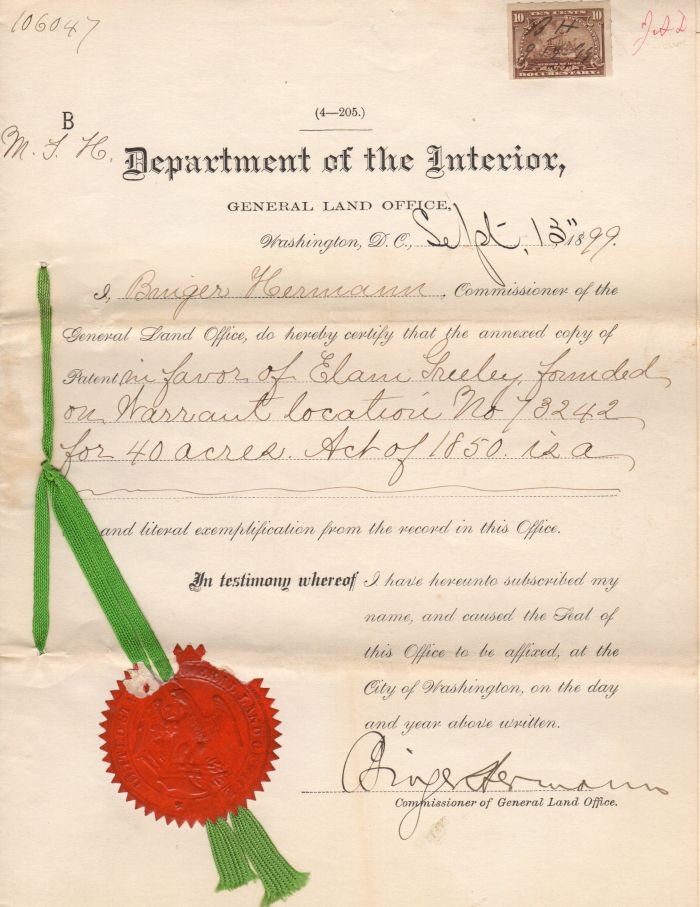 106047
10 TEN CENTS 10
DOCUMENTARY.
(4—205.)
B
M. S. H.
Department of the Interior,
GENERAL LAND OFFICE,
Washington, D. C., Sept. 13" 1899.
I, Binger Hermann, Commissioner of the
General Land Office, do hereby certify that the annexed copy of
Patent in favor of Elam Greeley, founded
on Warrant location No 73242
for 40 acres. Act of 1850. is a
and literal exemplification from the record in this Office.
In testimony whereof I have hereunto subscribed my
name, and caused the Seal of
this Office to be affixed, at the
City of Washington, on the day
and year above written.
Binger Hermann
Commissioner of General Land Office.